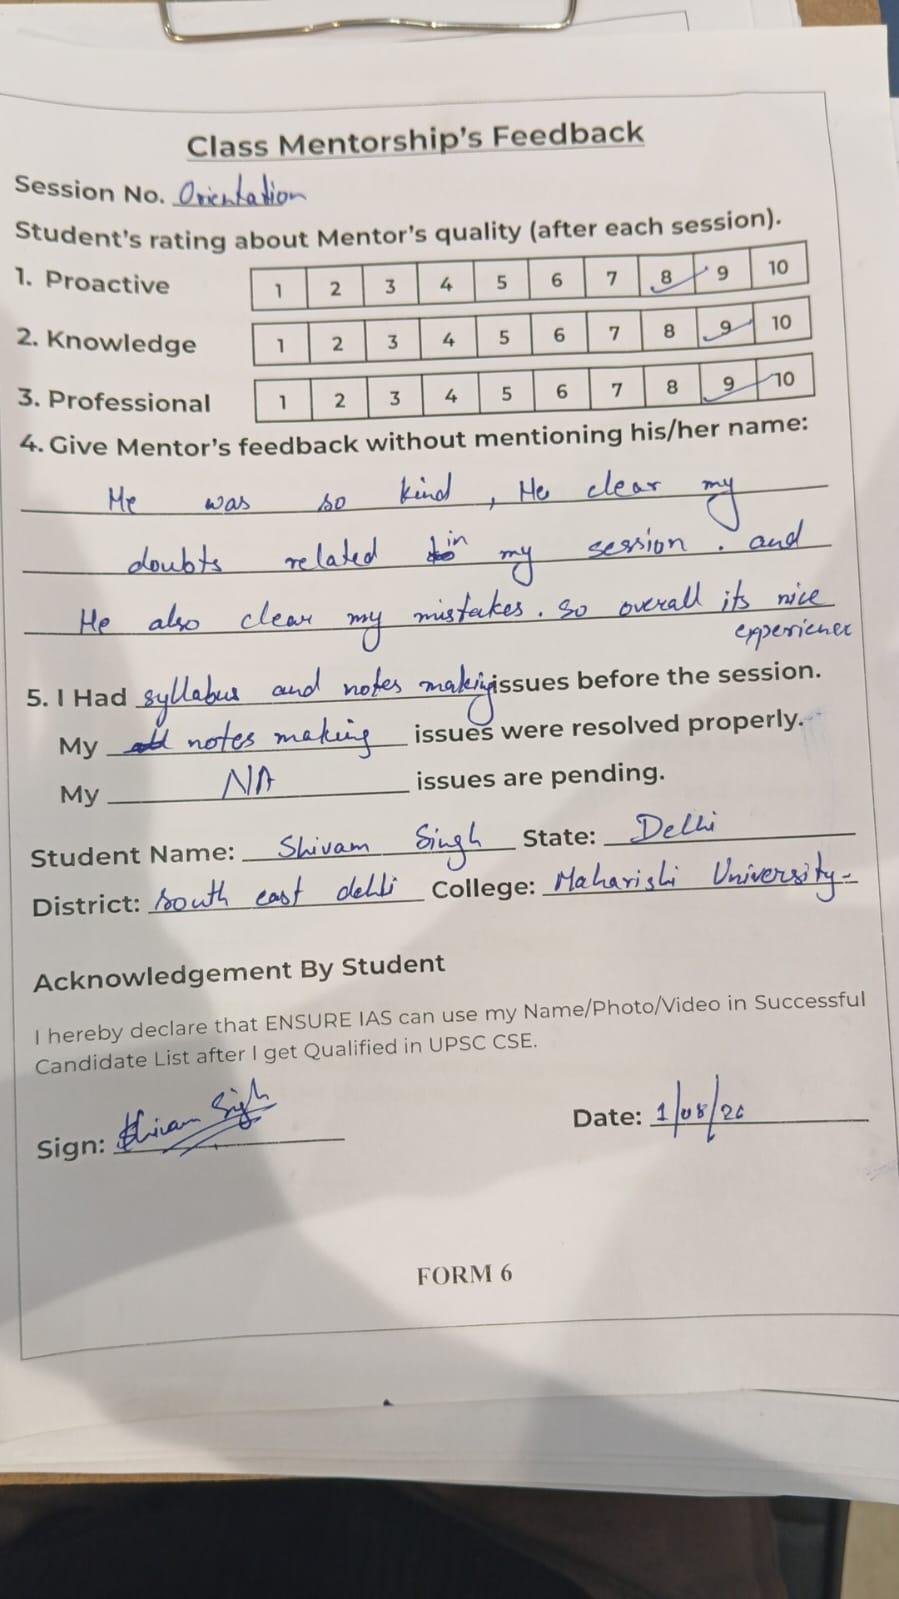 Class Mentorship's Feedback
Session No. Orientation
Student's rating about Mentor's quality (after each session).
1. Proactive 1 2 3 4 5 6 7 8 9 10
2. Knowledge 1 2 3 4 5 6 7 8 9 10
3. Professional 1 2 3 4 5 6 7 8 9 10
4. Give Mentor's feedback without mentioning his/her name:
He was so kind, He clear my
doubts related in my session. and
He also clear my mistakes. So overall its nice
experience
5. I Had syllabus and notes making issues before the session.
My notes making issues were resolved properly.
My NA issues are pending.
Student Name: Shivam Singh State: Delhi
District: South east dehli College: Maharishi University
Acknowledgement By Student
I hereby declare that ENSURE IAS can use my Name/Photo/Video in Successful
Candidate List after I get Qualified in UPSC CSE.
Sign: Shivam Sigh Date: 1/08/26
FORM 6